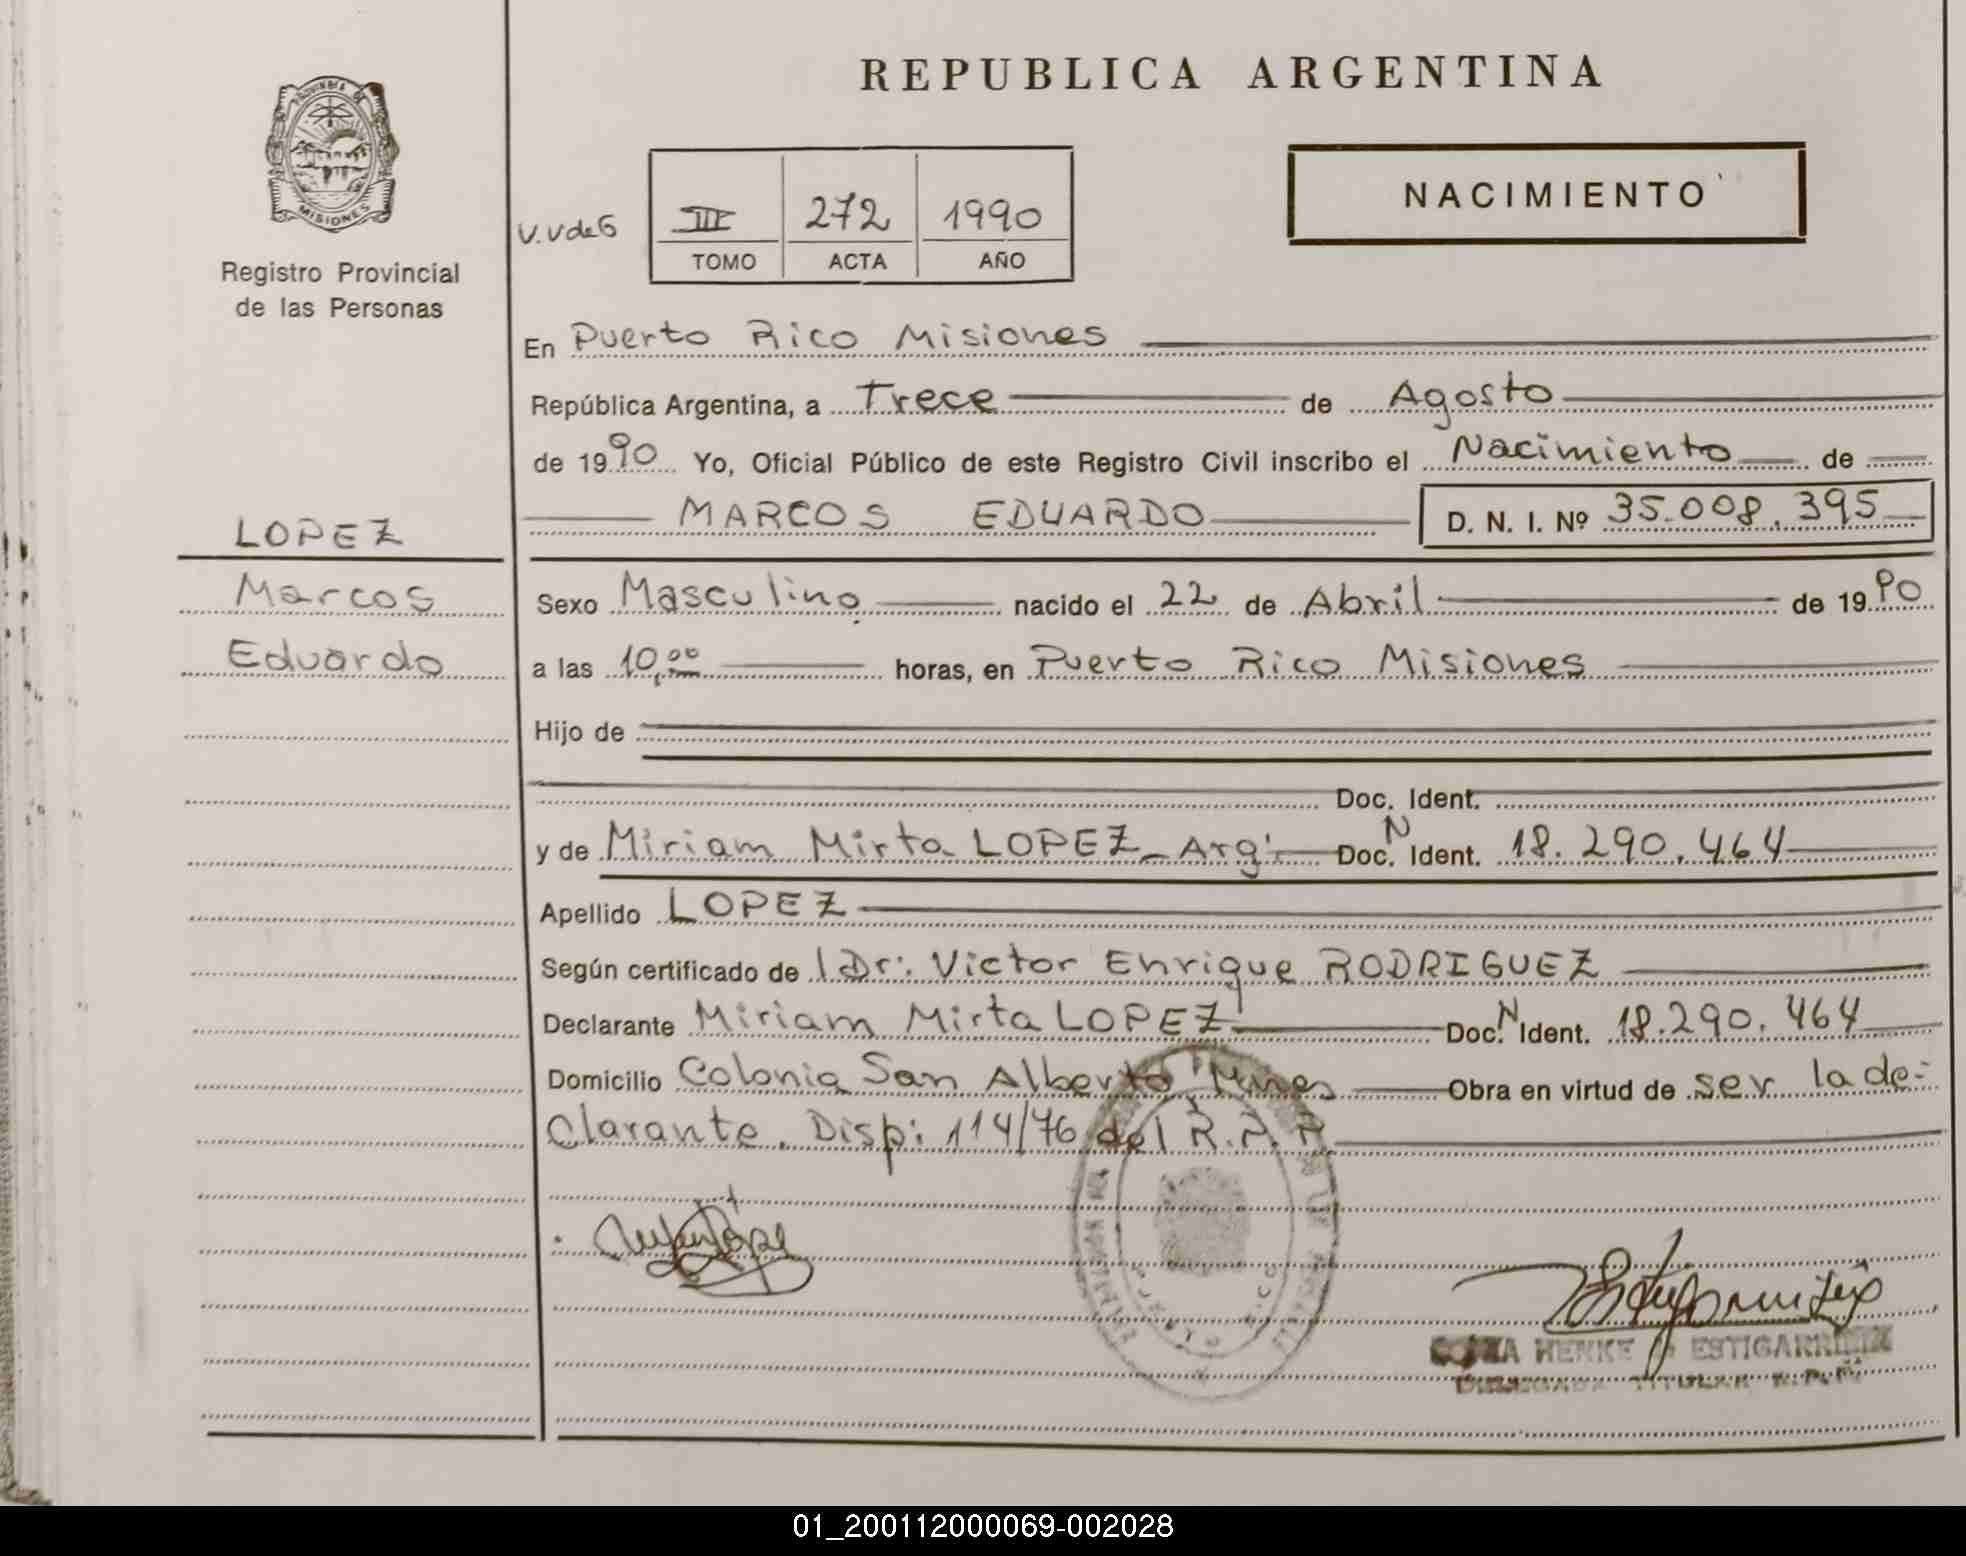 REPUBLICA ARGENTINA
PROVINCIA DE
MISIONES
Registro Provincial
de las Personas
V.V de G
III 272 1990
TOMO ACTA AÑO
NACIMIENTO
En Puerto Rico Misiones
República Argentina, a Trece de Agosto
de 1990 Yo, Oficial Público de este Registro Civil inscribo el Nacimiento de
MARCOS EDUARDO D. N. I. Nº 35.008.395
LOPEZ
Marcos
Eduardo
Sexo Masculino nacido el 22 de Abril de 1990
a las 10,00 horas, en Puerto Rico Misiones
Hijo de
Doc. Ident.
y de Miriam Mirta LOPEZ - Arg: Doc. N Ident. 18.290.464
Apellido LOPEZ
Según certificado de l Dr: Victor Enrique RODRIGUEZ
Declarante Miriam Mirta LOPEZ Doc. N Ident. 18.290.464
Domicilio Colonia San Alberto Mnes Obra en virtud de ser la de-
clarante. Disp: 114/76 del R.P.P.
PUERTO RICO
HENKE ESTIGARRIBIA
DELEGADA TITULAR R.P.P.
01_200112000069-002028